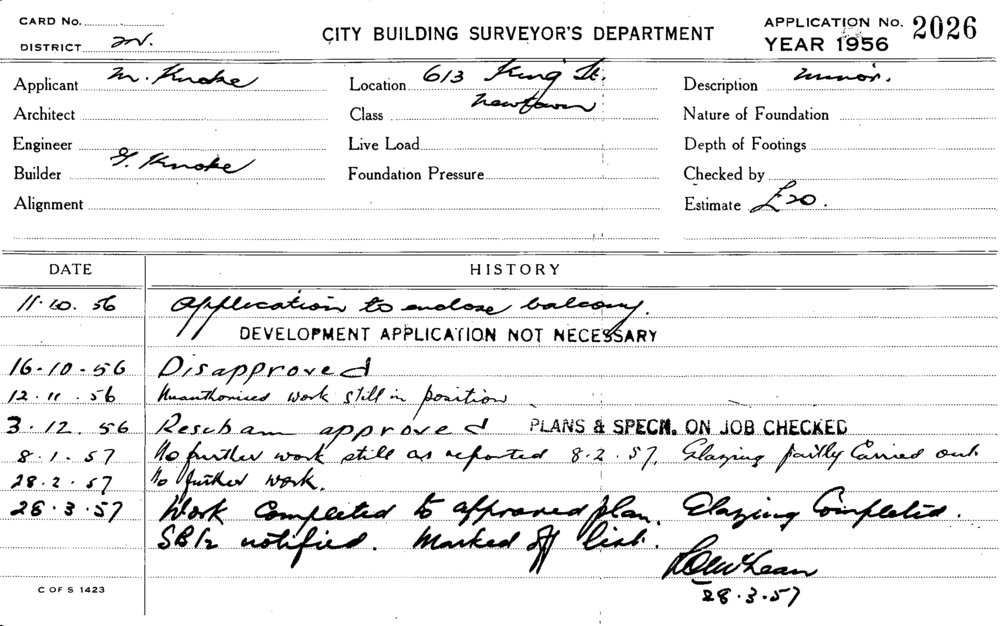 CARD No.
DISTRICT N.
CITY BUILDING SURVEYOR'S DEPARTMENT
APPLICATION No. 2026
YEAR 1956
Applicant M. Knoke
Location 613 King St.
Description Minor.
Architect
Class Newtown
Nature of Foundation
Engineer
Live Load
Depth of Footings
Builder G. Knoke
Foundation Pressure
Checked by
Alignment
Estimate £20.
DATE HISTORY
11.10.56 Application to enclose balcony.
DEVELOPMENT APPLICATION NOT NECESSARY
16-10-56 Disapproved
12.11.56 Unauthorised work still in position
3.12.56 Resubm approved PLANS & SPECN. ON JOB CHECKED
8.1.57 No further work still as reported 8.2.57. Glazing partly Carried out
28.2.57 No further work.
28.3.57 Work Completed to approved plan. Glazing Completed.
SB/2 notified. Marked off list.
28.3.57
C OF S 1423